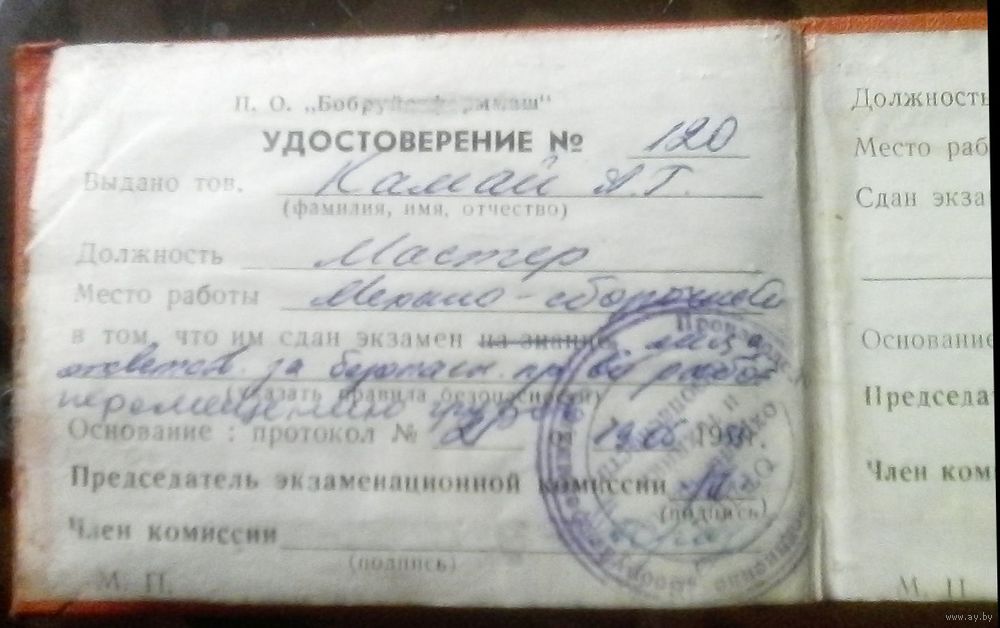 П. О. „Бобруйскферммаш"
УДОСТОВЕРЕНИЕ № 120
Выдано тов. Камай А.Г.
(фамилия, имя, отчество)
Должность Мастер
Место работы Механо-сборочный
в том, что им сдан экзамен на знание лица
ответств. за безопасн. произв. работ
(указать правила безопасности)
перемещению грузов
Основание: протокол № 2 от 19 198 г.
Председатель экзаменационной комиссии
(подпись)
Член комиссии
(подпись)
М. П.
Должность
Место раб
Сдан экза
Основание
Председат
Член ком
М. П
www.ay.by